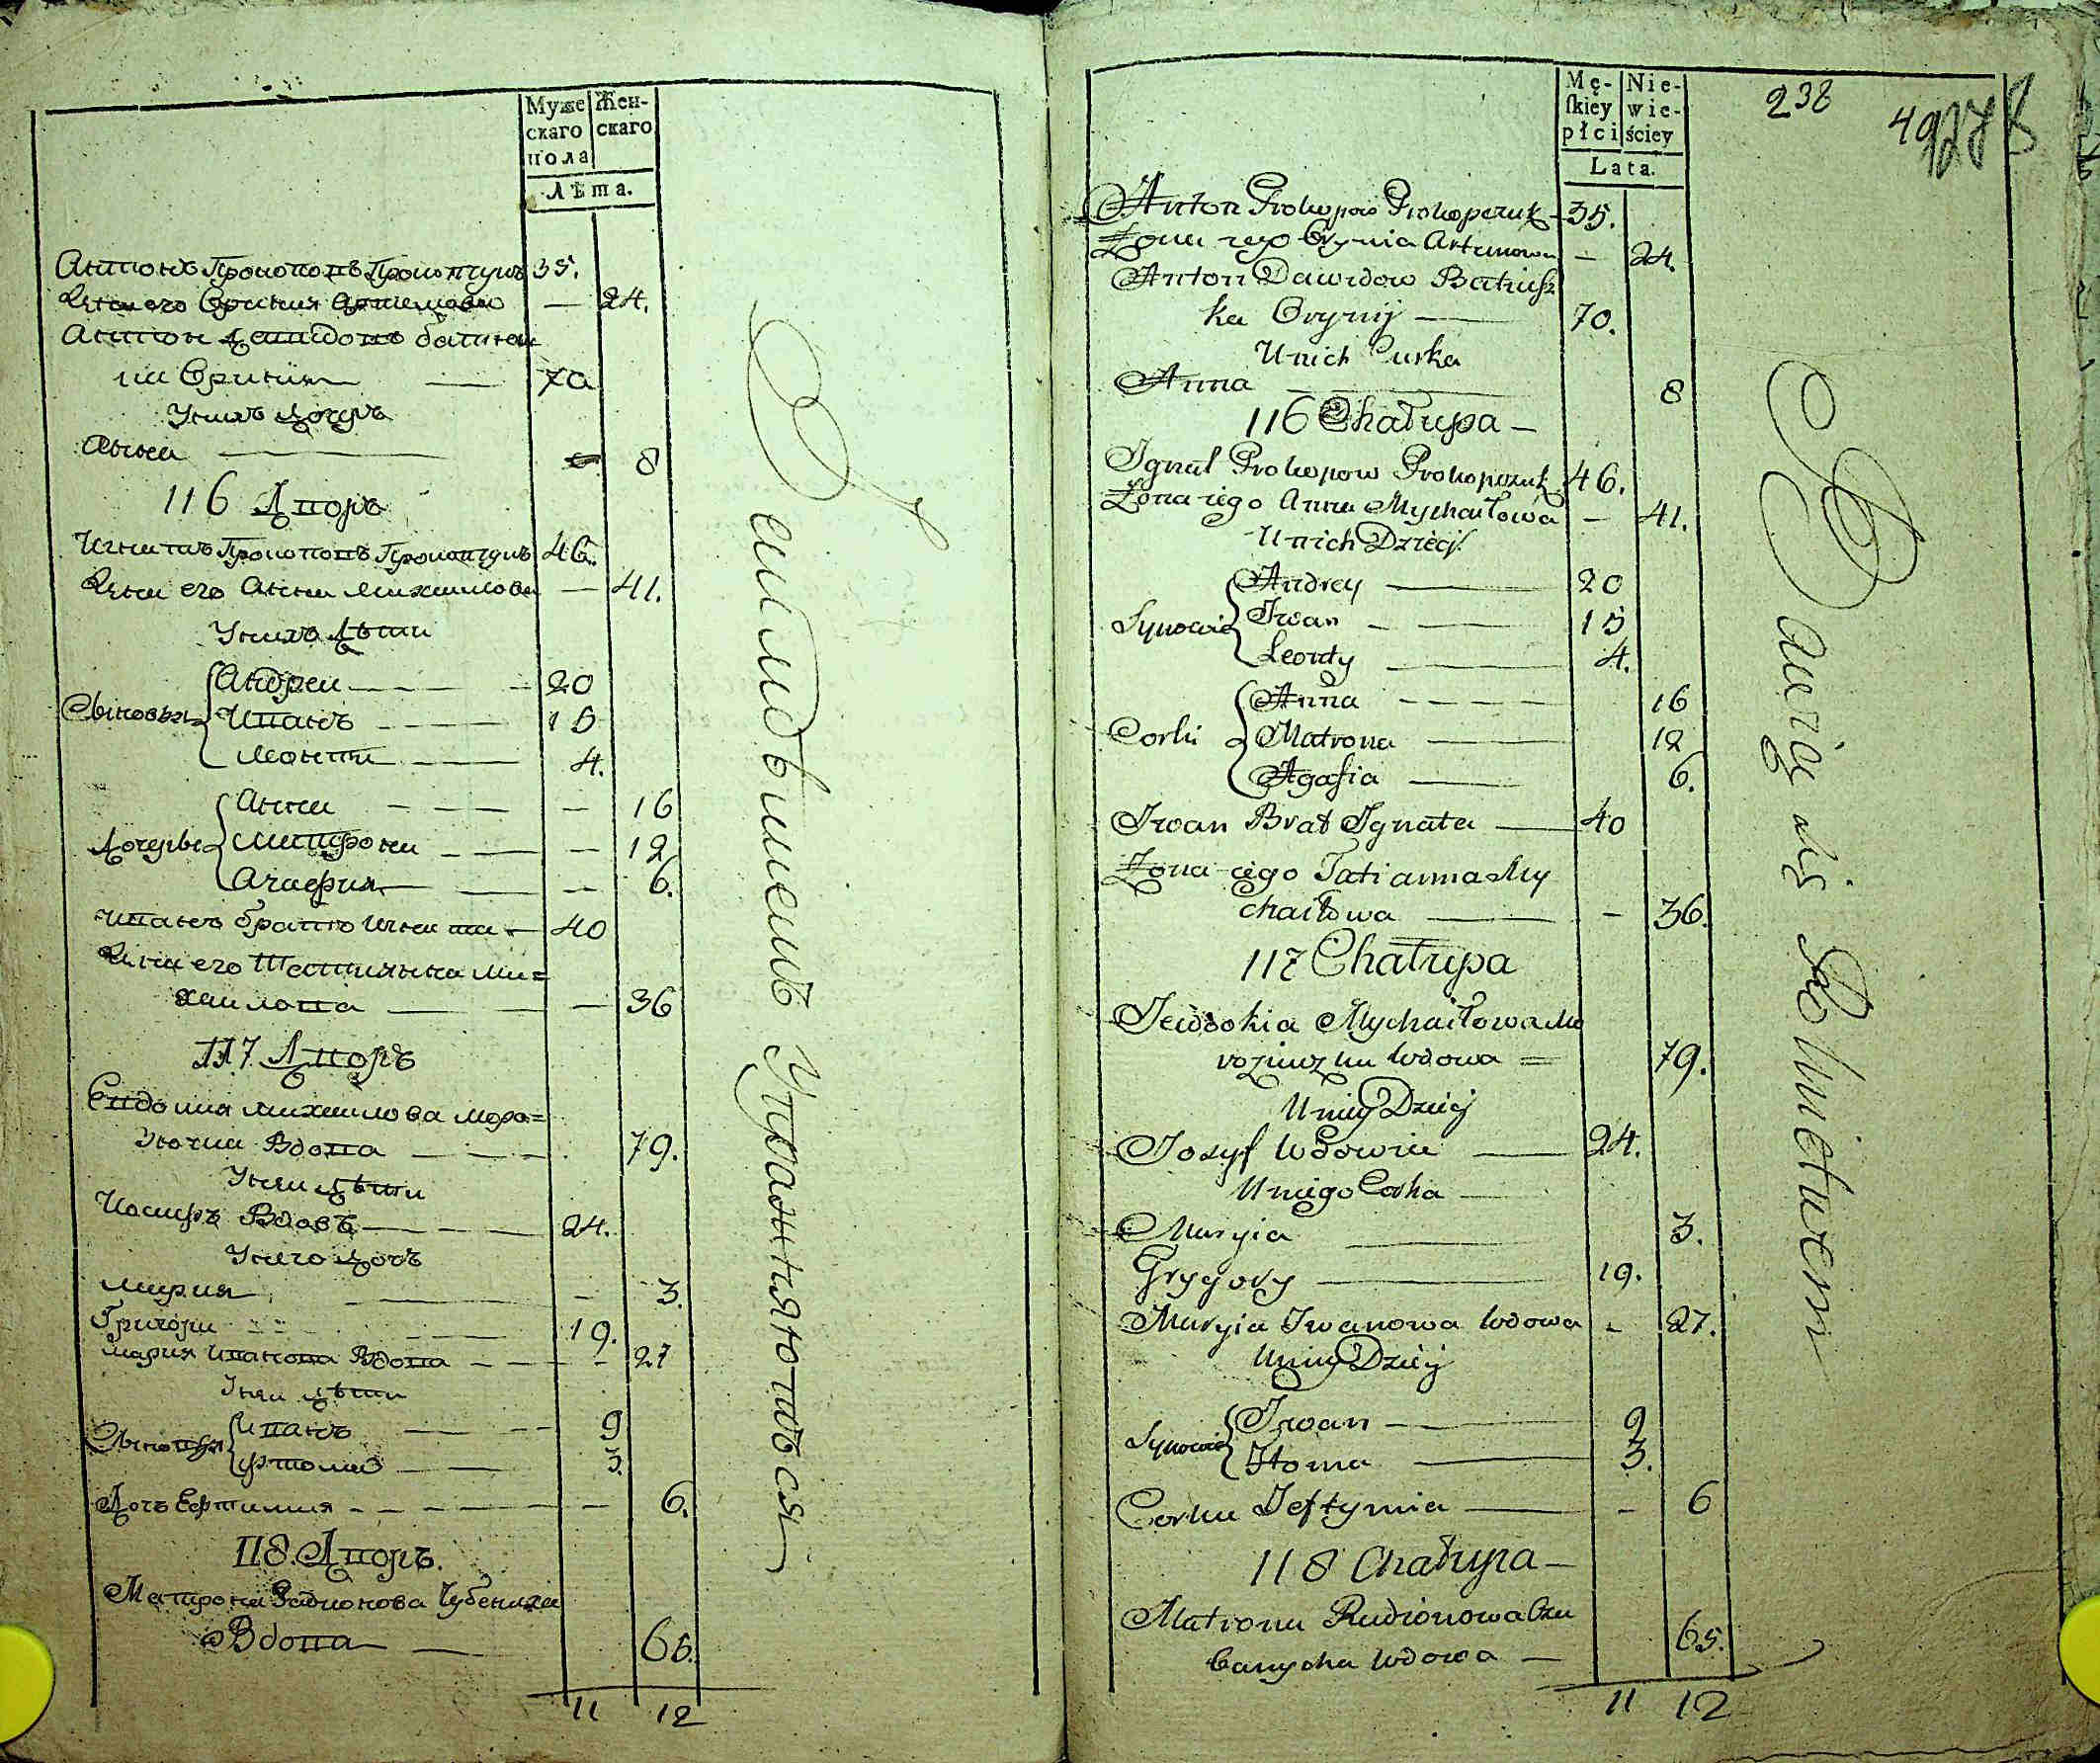 Муже
скаго
пола
Жен-
скаго
Лѣта.
Антонъ Прокоповъ Прокопчукъ 35.
Жена его Ориния Артемова — 24.
Антон Давидовъ батюш
ка Ориния — 70
У нихъ дочерь
Анна — 8
116 Дворъ
Игнатъ Прокоповъ Прокопчукъ 46.
Жена его Анна Михаилова — 41.
У нихъ дѣти
Сыновья
Андреи — 20
Иванъ — 15
Леонти — 4.
Дочерѣ
Анна — 16
Матрона — 12
Агафия — 6.
Иванъ братъ Игната — 40
Жена его Татиянна Ми=
хаилова — 36
117 Дворъ
Евдокия Михаилова Моро=
зючка Вдова — 79.
У неи дѣти
Иосифъ Вдовъ — 24.
У него дочъ
Мария — 3.
Григори — 19.
Мария Иванова Вдова — 27
У неи дѣти
Сыновья
Иванъ — 9
Фтома — 3.
Дочъ Ефтимия — 6.
118. Дворъ.
Матрона Радионова
Вдова — 65.
11 12
Упражняютъся
Mę-
skiey
płci
Nie-
wie-
ściey
Lata.
238
49
Anton Prokopow Prokopczuk 35.
Żona iego Orynia Artemowa — 24.
Anton Dawidow Batiusz
ka Oryny — 70.
U nich Curka
Anna — 8
116 Chałupa —
Ignat Prokopow Prokopczuk 46.
Żona iego Anna Mychaiłowa — 41.
U nich Dzieci
Synowie
Andrey — 20
Iwan — 15
Leonty — 4.
Corki
Anna — 16
Matrona — 12
Agafia — 6.
Iwan Brat Ignata — 40
Żona iego Tatianna My
chaiłowa — 36.
117 Chałupa
Iewdokia Mychaiłowa Mo
roziuczka wdowa = 79.
U niey Dzieci
Iozyf wdowiec — 24.
U niego Corka —
Maryia — 3.
Grygory — 19.
Maryia Iwanowa wdowa — 27.
U niey Dzieci
Synowie
Iwan — 9
Ftoma — 3.
Corka Ieftymia — 6
118 Chałupa —
Matrona Radionowa Czu
banycha wdowa — 65.
11 12